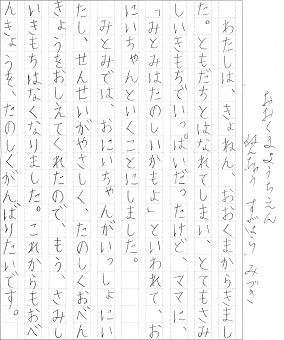 おおくまようちえん
ねんちょう すぎはら みずき
わたしは、きょねん、おおくまからきまし
た。ともだちとはなれてしまい、とてもさみ
しいきもちでいっぱいだったけど、ママに、
「みとみはたのしいかもよ」といわれて、お
にいちゃんといくことにしました。
みとみでは、おにいちゃんがいっしょにい
たし、せんせいがやさしく、たのしくおべん
きょうをおしえてくれたので、もう、さみし
いきもちはなくなりました。これからもおべ
んきょうを、たのしくがんばりたいです。